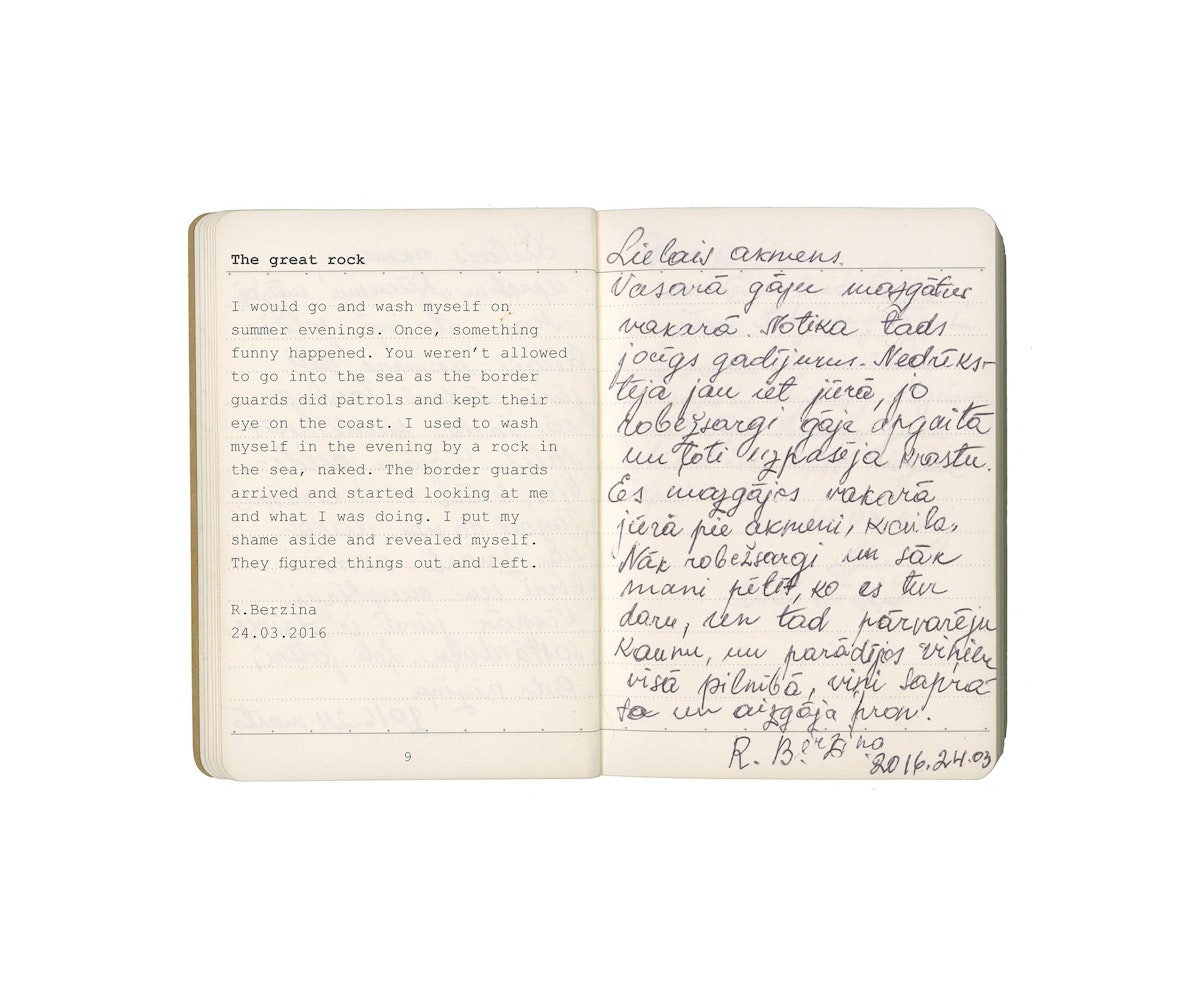 The great rock
I would go and wash myself on
summer evenings. Once, something
funny happened. You weren't allowed
to go into the sea as the border
guards did patrols and kept their
eye on the coast. I used to wash
myself in the evening by a rock in
the sea, naked. The border guards
arrived and started looking at me
and what I was doing. I put my
shame aside and revealed myself.
They figured things out and left.
R.Berzina
24.03.2016
9
Lielais akmens.
Vasarā gāju mazgāties
vakarā. Notika tāds
jocīgs gadījums. Nedrīks-
tēja jau iet jūrā, jo
robežsargi gāja apgaitā
un ļoti uzpasēja krastu.
Es mazgājos vakarā
jūrā pie akmeni, kaila.
Nāk robežsargi un sāk
mani pētīt, ko es tur
daru, un tad pārvarēju
kaunu, un parādījos viņiem
visā pilnībā, viņi saprata
to un aizgāja prom.
R. Bērziņa
2016.24.03